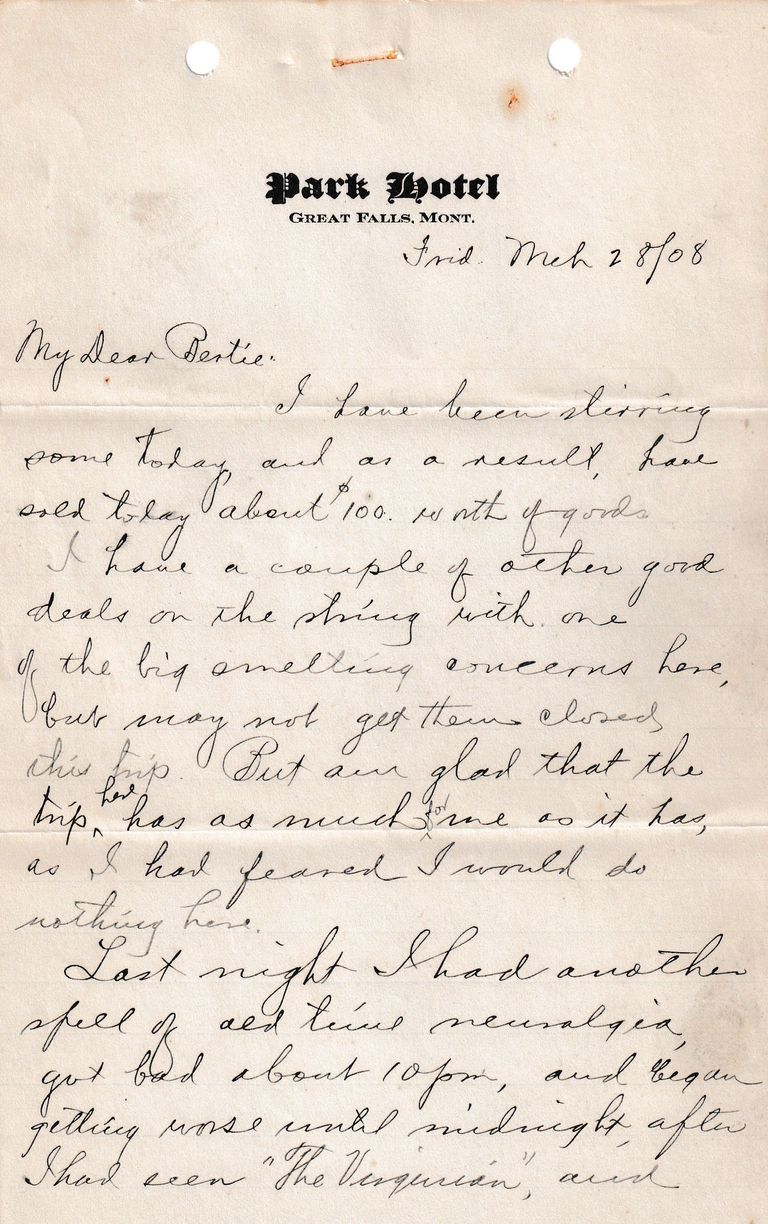 Park Hotel
GREAT FALLS, MONT.
Frid. Mch 28/08
My Dear Bertie:
I have been stirring
some today, and as a result, have
sold today about $100. worth of goods
I have a couple of other good
deals on the string with one
of the big smelting concerns here,
but may not get them closed
this trip. But am glad that the
trip here has as much for me as it has,
as I had feared I would do
nothing here.
Last night I had another
spell of old time neuralgia,
got bad about 10 pm, and began
getting worse until midnight, after
I had seen "The Virginian", and